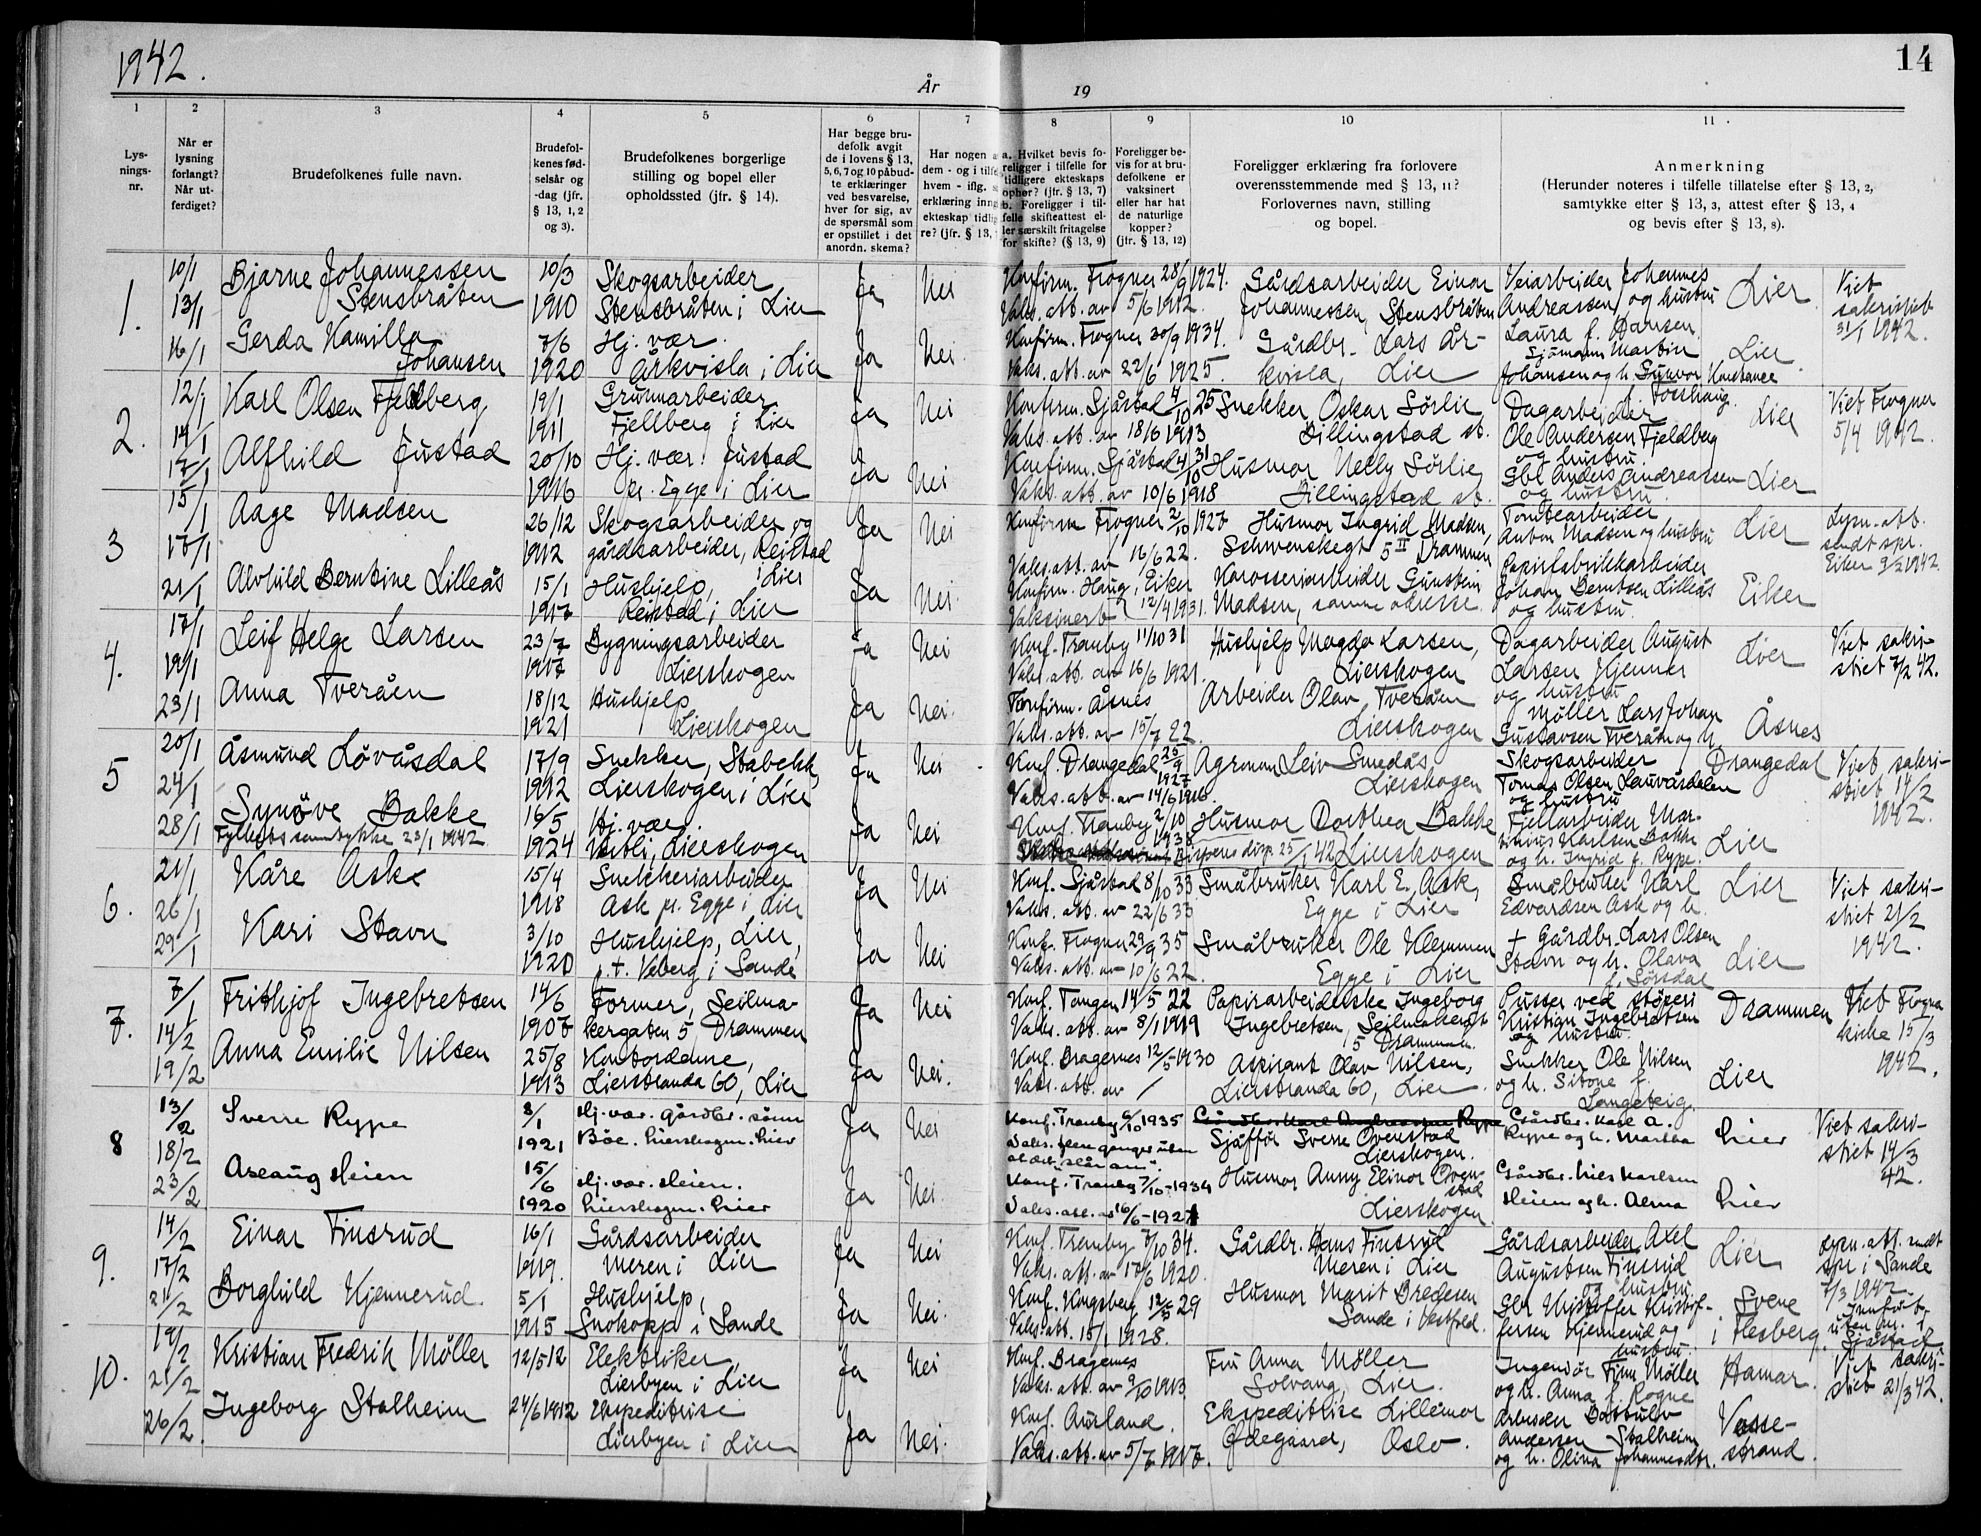 1942.
År
19
14
1
2
3
4
5
6
7
8
9
10
11
Lys-
nings-
nr.
Når er
lysning
forlangt?
Når ut-
ferdiget?
Brudefolkenes fulle navn.
Brudefol-
kenes fød-
selsår og
-dag (jfr.
§ 13, 1, 2
og 3).
Brudefolkenes borgerlige
stilling og bopel eller
opholdssted (jfr. § 14).
Har begge bru-
defolk avgit
de i lovens § 13,
5, 6, 7 og 10 påbud-
te erklæringer
ved besvarelse,
hver for sig, av
de spørsmål som
er opstillet i det
anordn. skema?
Har nogen a
dem - og i tilfe
hvem - iflg. s
erklæring inng
ekteskap tidlig
re? (jfr. § 13,
a. Hvilket bevis fo-
religger i tilfelle for
tidligere ekteskaps
ophør? (jfr. § 13, 7)
b. Foreligger i til-
felle skifteattest el-
ler særskilt fritagelse
for skifte? (§ 13, 9)
Foreligger be-
vis for at bru-
defolkene er
vaksinert
eller har hat
de naturlige
kopper?
(jfr. § 13, 12)
Foreligger erklæring fra forlovere
overensstemmende med § 13, 11?
Forlovernes navn, stilling
og bopel.
Anmerkning
(Herunder noteres i tilfelle tillatelse efter § 13, 2,
samtykke efter § 13, 3, attest efter § 13, 4
og bevis efter § 13, 8).
1.
10/1
13/1
16/1
Bjarne Johannessen
Stensbråten
10/3
1910
Skogsarbeider
Stensbråten i Lier
Ja
Nei
Konfirm. Frogner 28/9 1924.
Vaks. att. av 5/6 1912.
Gårdsarbeider Einar
Johannessen, Stensbråten
Veiarbeider Johannes
Andreassen og hustru
Laura f. Hansen
Lier
Viet
sakristiet
31/1 1942.
Gerda Kamilla
Johansen
7/6
1920
Hj. vær.
Årkvisla i Lier
Ja
Nei.
Konfirm. Frogner 30/9 1934.
Vaks. att. av 22/6 1925.
Gårdbr. Lars År-
kvisla, Lier
Sjømann Martin
Johansen og h. Gunvor Konstance
f. Fosshaug.
Lier
2.
12/1
14/1
17/1
Karl Olsen Fjeldberg
19/1
1911
Grunnarbeider
Fjellberg i Lier
Ja
Nei
Konfirm. Sjåstad 4/10 25
Vaks. att. av 18/6 1913
Snekker Oskar Sørlie
Dillingstad st.
Dagarbeider
Ole Andersen Fjeldberg
og hustru
Lier
Viet Frogner
5/4 1942.
Alfhild Justad
20/10
1916
Hj. vær. Justad
pr. Egge i Lier
Ja
Nei
Konfirm. Sjåstad 4/10 31
Vaks. att. av 10/6 1918
Husmor Nelly Sørlie
Dillingstad st.
Gbr. Anders Andreassen
og hustru.
Lier
3
15/1
17/1
21/1
Aage Madsen
26/12
1912
Skogsarbeider og
gårdsarbeider, Reistad
i Lier
Ja
Nei
Konfirm Frogner 2/10 1927
Vaks. att. av 16/6 22.
Husmor Ingrid Madsen,
Schwenskegt 5 II Drammen
Tomtearbeider
Anton Madsen og hustru
Lier
Lysn. att.
sendt spr.
Eiker 9/2 1942.
Alvhild Berntine Lilleås
15/1
1917
Hushjelp,
Reistad i Lier
Ja
Nei.
Konfirm. Haug, Eiker
Vaksinert 12/4 1931.
Karosseriarbeider Gunstein
Madsen, samme adresse.
Papirfabrikkarbeider
Johan Berntsen Lilleås
og hustru
Eiker
4.
17/1
19/1
23/1
Leif Helge Larsen
23/7
1917
Bygningsarbeider
Lierskogen
Ja
Nei
Konf. Tranby 11/10 31
Vaks. att. av 16/6 1921.
Hushjelp Magda Larsen,
Lierskogen
Dagarbeider August
Larsen Hjenner
og hustru
Lier
Viet sakri-
stiet 7/2 42.
Anna Tveråen
18/12
1921
Hushjelp
Lierskogen
Ja
Nei.
Konfirm. Åsnes
Vaks. att. av 15/7 22.
Arbeider Olav Tveråen
Lierskogen
Møller Lars Johan
Gustavsen Tveråen og h.
Åsnes
5
20/1
24/1
28/1
Åsmund Løvåsdal
17/9
1912
Snekker, Stabekk,
Lierskogen i Lier
Ja
Nei
Konf. Drangedal 25/9 1927
Vaks. att. av 14/6 1916.
Agronom Leiv Smedås
Lierskogen
Skogsarbeider
Tomas Olsen Lauvåsdalen
og hustru
Drangedal
Viet sakri-
stiet 14/2
1942.
Synøve Bakke
Fylkets samtykke 23/1 1942
16/5
1924
Hj. vær.
Vebli, Lierskogen
Ja
Nei
Konf. Tranby 2/10 1938
Disp. 25/1 42
Husmor Dorthea Bakke
Lierskogen
Fjellarbeider Mar-
tinius Karlsen Bakke
og h. Ingrid f. Rype.
Lier
6.
21/1
26/1
29/1
Kåre Ask
15/4
1918
Snekkeriarbeider
Ask pr. Egge i Lier
Ja
Nei
Konf. Sjåstad 8/10 33
Vaks. att. av 22/6 33
Småbruker Karl E. Ask,
Egge i Lier
Småbruker Karl
Edvardsen Ask og h.
Lier
Viet sakri-
stiet 21/2
1942.
Kari Stavn
3/10
1920
Hushjelp, Lier,
p.t. Veberg i Sande
Ja
Nei
Konf. Frogner 29/9 35
Vaks. att. av 10/6 22.
Småbruker Ole Klemmen
Egge i Lier
+ Gårdbr. Lars Olsen
Stavn og h. Olava
f. Sørsdal
Lier
7.
7/1
14/2
19/2
Frithjof Ingebretsen
14/6
1907
Former, Seilma-
kergaten 5, Drammen
Ja
Nei
Konf. Tangen 14/5 22
Vaks. att. av 8/1 1919
Papirarbeiderske Ingeborg
Ingebretsen, Seilmakergt
5 Drammen.
Pusser ved støperi
Kristian Ingebretsen
og hustru
Drammen
Viet Frogner
kirke 15/3
1942.
Anna Emilie Nilsen
25/8
1913
Kontordame,
Lierstranda 60, Lier
Ja
Nei.
Konf. Bragernes 12/5 1930
Vaks. att. av /
Aspirant Olav Nilsen,
Lierstranda 60, Lier
Snekker Ole Nilsen
og h. Sitone f.
Langebeig.
Lier
8
13/2
18/2
23/2
Sverre Rype
8/1
1921
Hj. vær. gårdbr. sønn
Bøe. Lierskogen. Lier
Ja
Nei
Konf. Tranby 6/10 1935
Vaks. flere ganger uten
at det "slår an".
Sjåffør Sverre Ovenstad
Lierskogen.
Gårdbr. Karl A.
Rype og h. Martha
Lier
Viet sakri-
stiet 14/3
42.
Aslaug Heien
15/6
1920
Hj. vær. Heien.
Lierskogen. Lier
Ja
Nei
Konf. Tranby 7/10-1934
Vaks. att. av 16/6-1927
Husmor Anny Elinor Oven-
stad
Lierskogen
Gårdbr. Nils Karlsen
Heien og h. Alma
Lier
9.
14/2
17/2
21/2
Einar Finsrud
16/1
1919.
Gårdsarbeider
Meren i Lier
Ja
Nei
Konf. Tranby 7/10 34.
Vaks. att. av 17/6 1920.
Gårdbr. Hans Finsrud
Meren i Lier
Gårdsarbeider Axel
Augustsen Finsrud
og hustru
Lier
Lysn. att. sendt
spr. i Sande
7/3 1942.
Borghild Kjennerud.
5/1
1915
Hushjelp,
Snekopp i Sande
Ja
Nei.
Konf. Kongsberg 12/5 29
Vaks. att. 15/1 1928.
Husmor Marit Bredesen
Sande i Vestfold.
Gbr Kristoffer Kristof-
fersen Kjennerud og
hustru.
Svene
i Flesberg.
10.
19/2
21/2
26/2
Kristian Fredrik Møller
12/5 12
Elektriker
Lierbyen i Lier
Ja
Nei
Konf. Bragernes
Vaks. att. av 9/10 1913
Fru Anna Møller
Solvang, Lier.
Ingeniør Finn Møller
og h. Anna f. Rogne
Hamar.
Viet sakri-
stiet 21/3 42.
Ingeborg Stalheim
24/6 1912
Ekspeditrise
Lierbyen i Lier
Ja
Nei.
Konf. Aurland.
Vaks. att. av 5/7 1917.
Ekspeditrise Lillemor
Ødegaard, Oslo.
Arbeider Botulv
Andersen Stalheim
og h. Olina Johannesdtr.
Vosse-
strand.